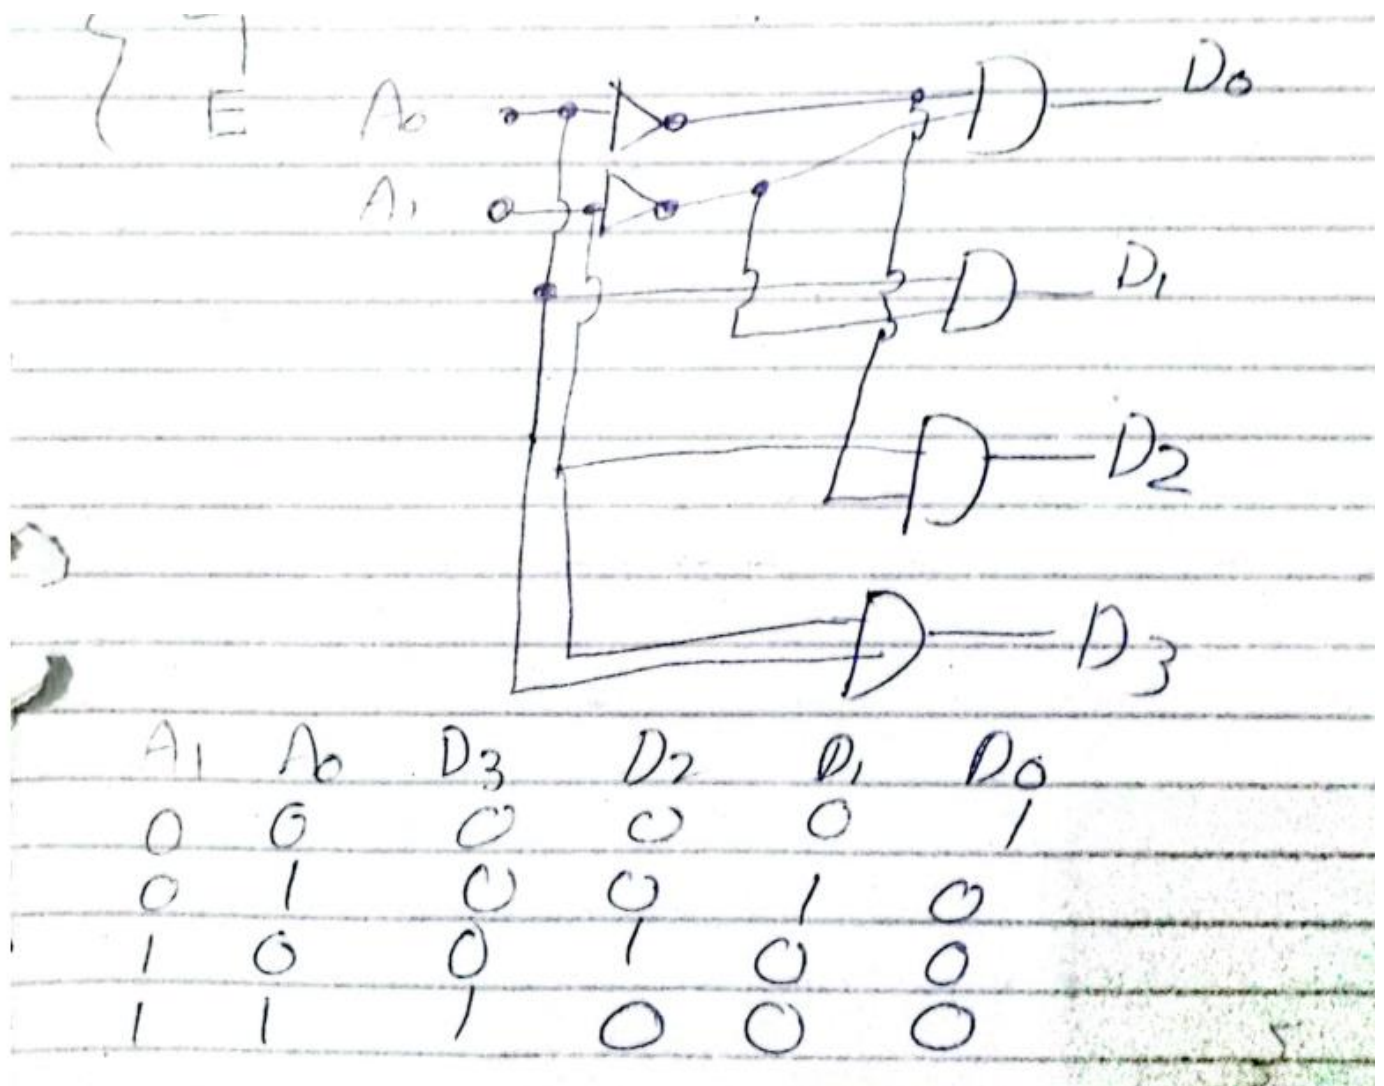 E A0 D0
A1
D1
D2
D3
A1 A0 D3 D2 D1 D0
0 0 0 0 0 1
0 1 0 0 1 0
1 0 0 1 0 0
1 1 1 0 0 0